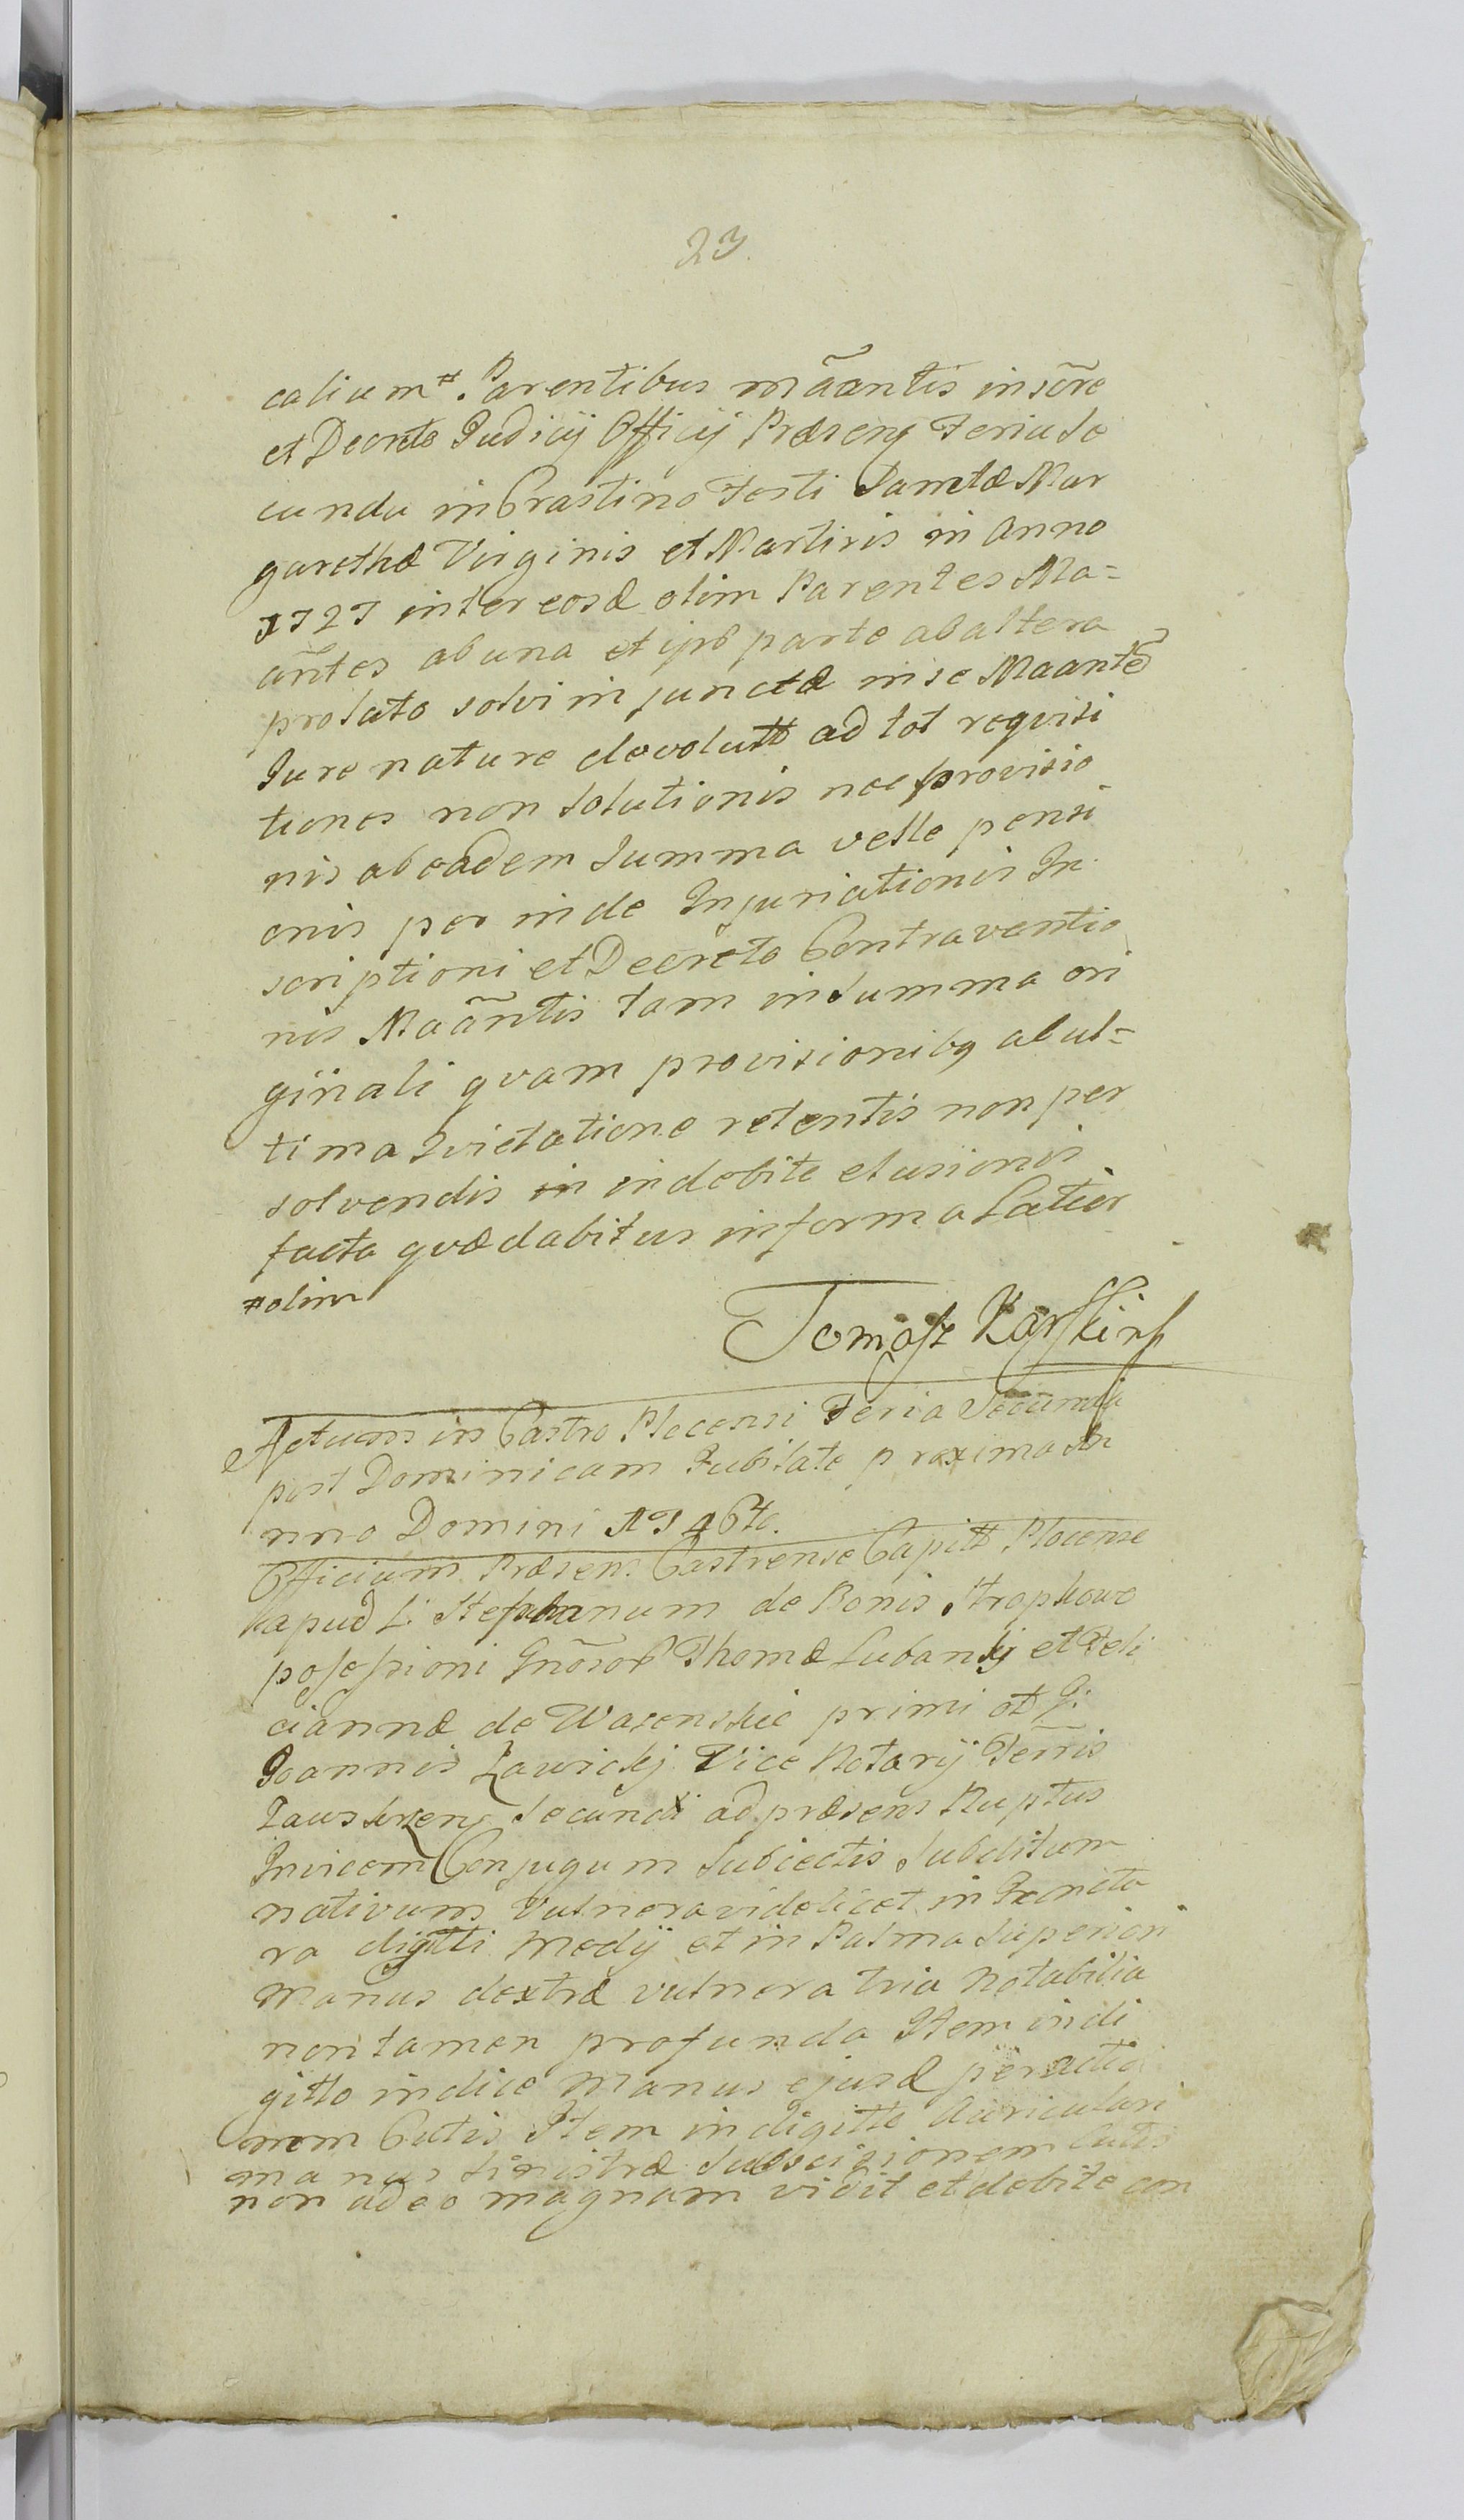 23.
calium # Parentibus mãantis inscr̃e
et Decreto Judicij Officij Præseng Feria Se
cunda in Crastino Festi Sanctæ Mar
garethæ Virginis et Martiris in Anno
1727 inter eosd olim Parentes Ma=
ãntes ab una et ipõ parte ab altera
prolato solvi injunctæ in se Maantẽ
Jure nature devolutt ad tot requisi
tiones non Solutionis nec provisio
nis ab eadem Summa velle pensi
onis per inde Injuriationis In
scriptioni et Decreto Contraventio
nis Maãntis tam in Summa ori
ginali quam provisionibq ab ul=
tima Quietatione retentis non per
solvendis in indebite elusionis
facta quæ dabitur in forma Latior
#olim
Tomasz Karski
Actum in Castro Plocensi Feria Secunda
post Dominicam Jubilate proxima An
nno Domini 1746to.
Officium Præsens Castrense Capitt Plocense
apud L: Stephanum de Bonis Stropkowo
possessioni Gnõsor Thomæ Lubanskj et Feli
ciannæ de Wasenskie primi et G:
Joannis Zawickj Vice Notarij Ter̃ris
Zawskrzeng Secundi ad præsens Nuptus
Invicem Conjugum Subiectis Subditum
nativum Vulnera videlicet in Juncta
ra digitti Medij et in Palma Superiori
Manus dextræ vulnera tria Notabilia
non tamen profunda Item in di
gitto indice Manus ejusd
nem Cutis Item in digitto Auriculari
manus Sinistræ Subscisionem Cutis
non adeo magnam vidit et debite con